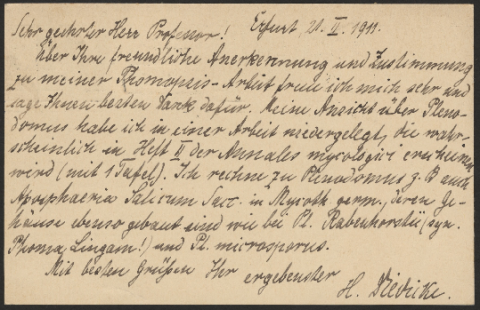 Sehr geehrter Herr Professor! Erfurt, 21. II. 1911.
Über Ihre freundliche Anerkennung und Zustimmung
zu meiner Phomopsis-Arbeit freue ich mich sehr und
sage Ihnen besten Dank dafür. Meine Ansicht über Pleno-
domus habe ich in einer Arbeit niedergelegt, die wahr-
scheinlich in Heft II der Annales mycologici erscheinen
wird (mit 1 Tafel). Ich rechne zu Plenodomus z. B. auch
Aposphaeria Salicum Sacc. in Mycoth. germ., deren Ge-
häuse ebenso gebaut sind wie bei Pl. Rabenhorstii (syn.
Phoma Lingam!) und Pl. microsporus.
Mit besten Grüßen Ihr ergebenster
H. Diedicke.